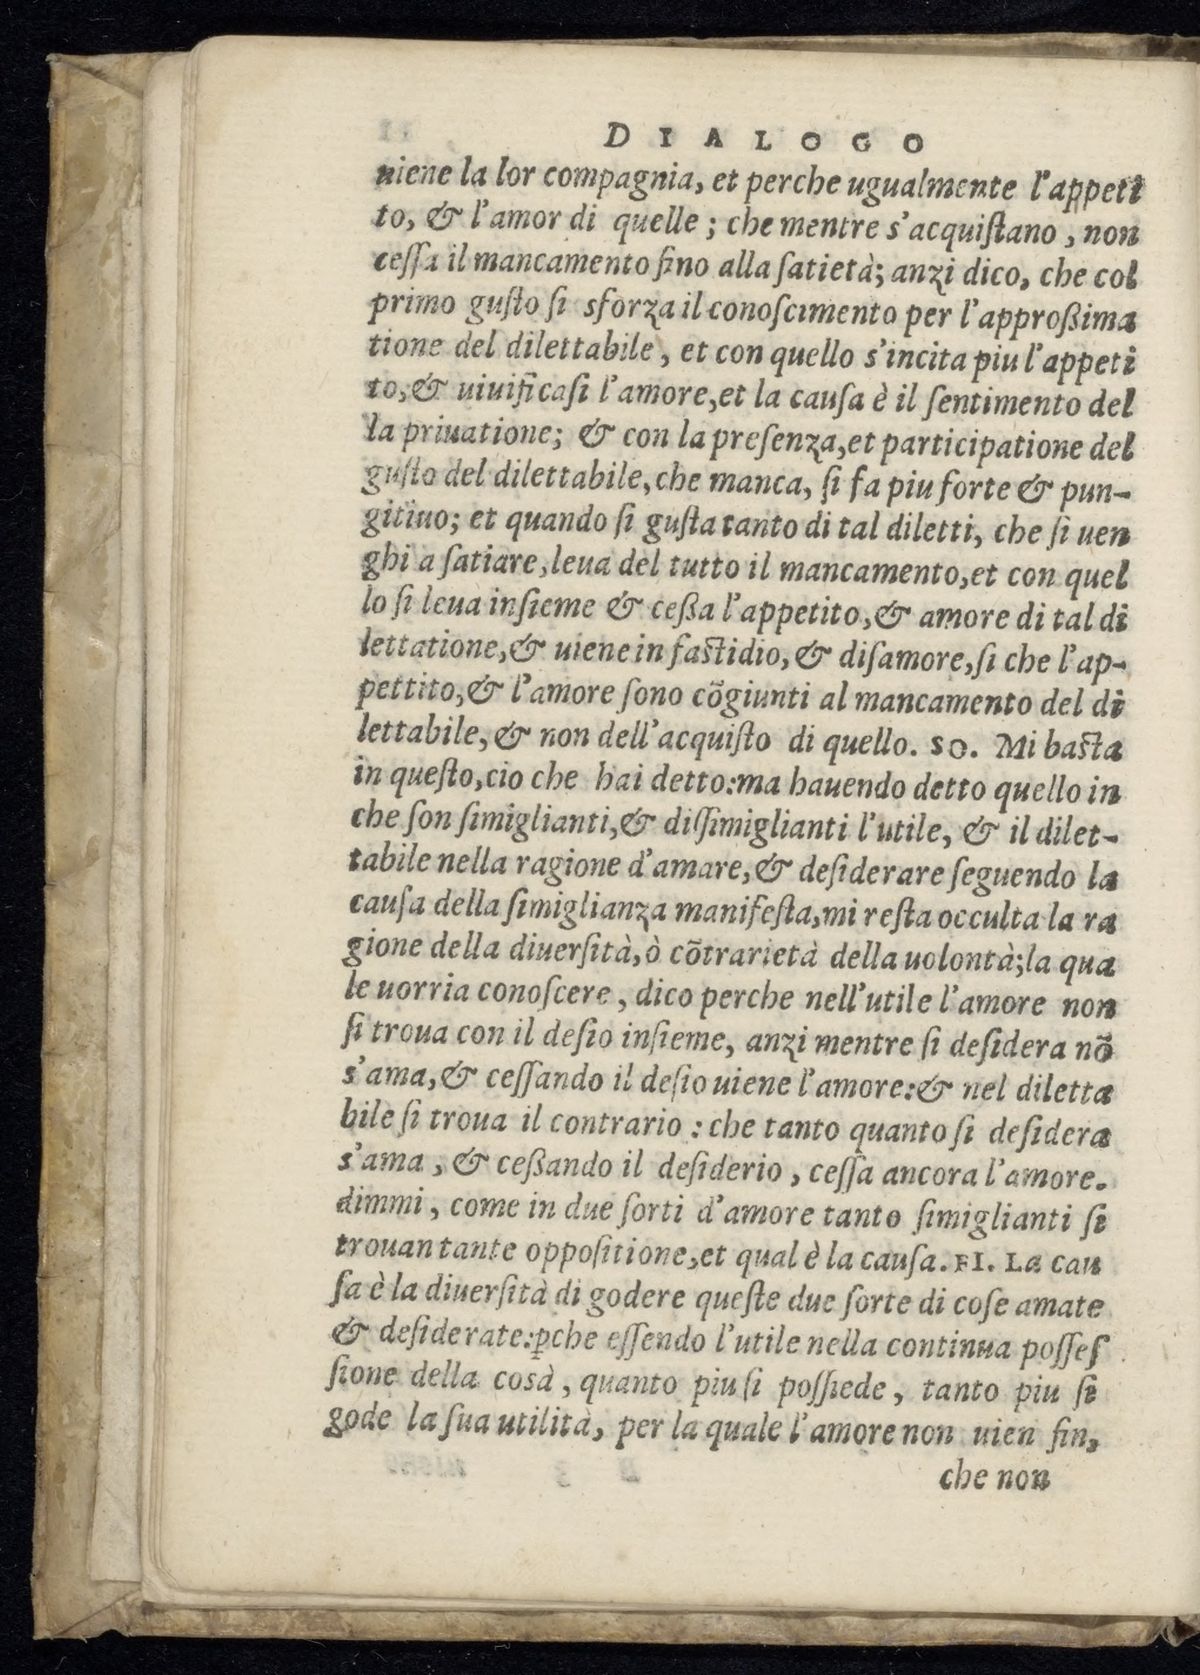 DIALOGO
uiene la lor compagnia, et perche ugualmente l'appeti
to, & l'amor di quelle; che mentre s'acquiſtano, non
ceſſa il mancamento ſino alla ſatietà; anzi dico, che col
primo guſto ſi sforza il conoſcimento per l'approßima
tione del dilettabile, et con quello s'incita piu l'appeti
to, & uiuificaſi l'amore, et la cauſa è il ſentimento del
la priuatione; & con la preſenza, et participatione del
guſto del dilettabile, che manca, ſi fa piu forte & pun-
gitiuo; et quando ſi guſta tanto di tal diletti, che ſi uen
ghi a ſatiare, leua del tutto il mancamento, et con quel
lo ſi leua inſieme & ceßa l'appetito, & amore di tal di
lettatione, & uiene in faſtidio, & diſamore, ſi che l'ap-
pettito, & l'amore ſono cõgiunti al mancamento del di
lettabile, & non dell'acquiſto di quello. SO. Mi baſta
in queſto, cio che hai detto: ma hauendo detto quello in
che ſon ſimiglianti, & diſſimiglianti l'utile, & il dilet-
tabile nella ragione d'amare, & deſiderare ſeguendo la
cauſa della ſimiglianza manifeſta, mi reſta occulta la ra
gione della diuerſità, ò cõtrarietà della uolontà; la qua
le uorria conoſcere, dico perche nell'utile l'amore non
ſi troua con il deſio inſieme, anzi mentre ſi deſidera nõ
s'ama, & ceſſando il deſio uiene l'amore: & nel diletta
bile ſi troua il contrario: che tanto quanto ſi deſidera
s'ama, & ceßando il deſiderio, ceſſa ancora l'amore.
dimmi, come in due ſorti d'amore tanto ſimiglianti ſi
trouan tante oppoſitione, et qual è la cauſa. FI. La cau
ſa è la diuerſità di godere queſte due ſorte di coſe amate
& deſiderate: ꝑche eſſendo l'utile nella continua poſſeſ
ſione della cosà, quanto piu ſi poſſiede, tanto piu ſi
gode la ſua utilità, per la quale l'amore non uien ſin,
che non